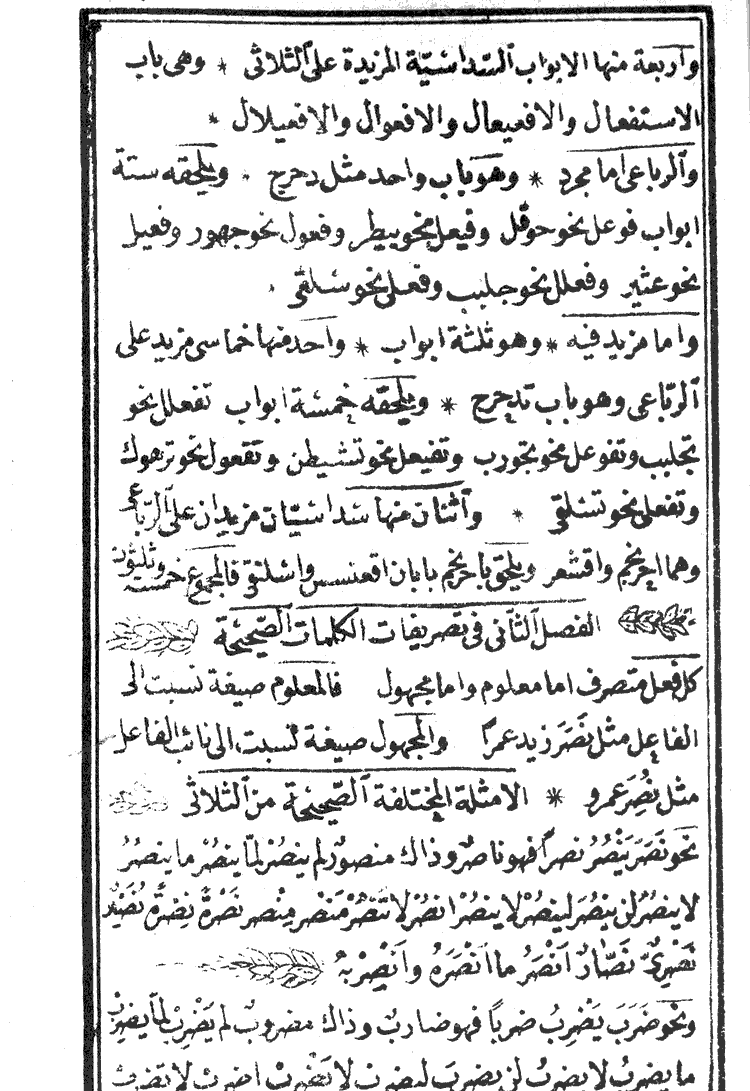 واربعة منها الابواب السّداسيّة المزيدة على الثلاثى * وهى باب
الاستفعال والافعيعال والافعوال والافعيلال *
والرباعى اما مجرد * وهو باب واحد مثل دحرج * ويلحقه ستة
ابواب فوعل نحو حوقل وفيعل نحو بيطر وفعول نحو جهور وفعيل
نحو عثير وفعلل نحو جلبب وفعلى نحو سلقى *
واما مزيد فيه * وهو ثلثة ابواب * واحد منها خماسى مزيد على
الرّباعى وهو باب تدحرج * ويلحقه خمسة ابواب تفعلل نحو
تجلبب وتفوعل نحو تجورب وتفيعل نحو تشيطن وتفعول نحو ترهوك
وتفعلى نحو تسلقى * واثنان منها سداسيّان مزيدان على الرّباعى
وهما احرنجم واقشعر ويلحق باحرنجم بابان اقعنسس واسلنقى فالمجموع خمسة وثلثون
الفصل الثّانى فى تصريفات الكلمات الصّحيحة
كل فعل متصرف اما معلوم واما مجهول فالمعلوم صيغة نسبت الى
الفاعل مثل نَصَرَ زيد عمرًا والمجهول صيغة نسبت الى نائب الفاعل
مثل نُصِرَ عمرو * الامثلة المختلفة الصّحيحة من الثلاثى
نحو نَصَرَ يَنْصُرُ نصرًا فهو ناصرٌ وذاك منصورٌ لم ينصُرْ لمّا ينصُرْ ما ينصُرُ
لا ينصُرُ لن ينصُرَ لينصُرْ لا ينصُرْ انصُرْ لا تَنْصُرْ مَنْصر مِنْصر نَصْرةً نِصْرةً نُصَيْرٌ
نَصْرِىٌّ نَصّارٌ اَنْصَرُ ما اَنْصَرَهُ واَنْصِرْ بهُ
ونحو ضَرَبَ يَضْرِبُ ضربًا فهو ضاربٌ وذاك مضروبٌ لم يَضْرِبْ لمّا يضرِبْ
ما يضربُ لا يضربُ لن يضربَ ليضربْ لا يَضْرِبْ اضربْ لا تضربْ